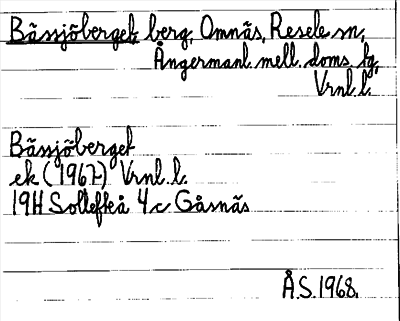 Bässjöberget berg, Omnäs, Resele sn,
Ångermanl. mell. doms. fg,
Vrnl. l.
Bässjöberget
ek (1967) Vrnl. l.
19H Sollefteå 4c Gåsnäs
Å.S. 1968.